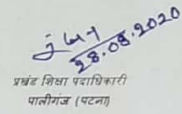 28.08.2020
प्रखंड शिक्षा पदाधिकारी
पालीगंज (पटना)